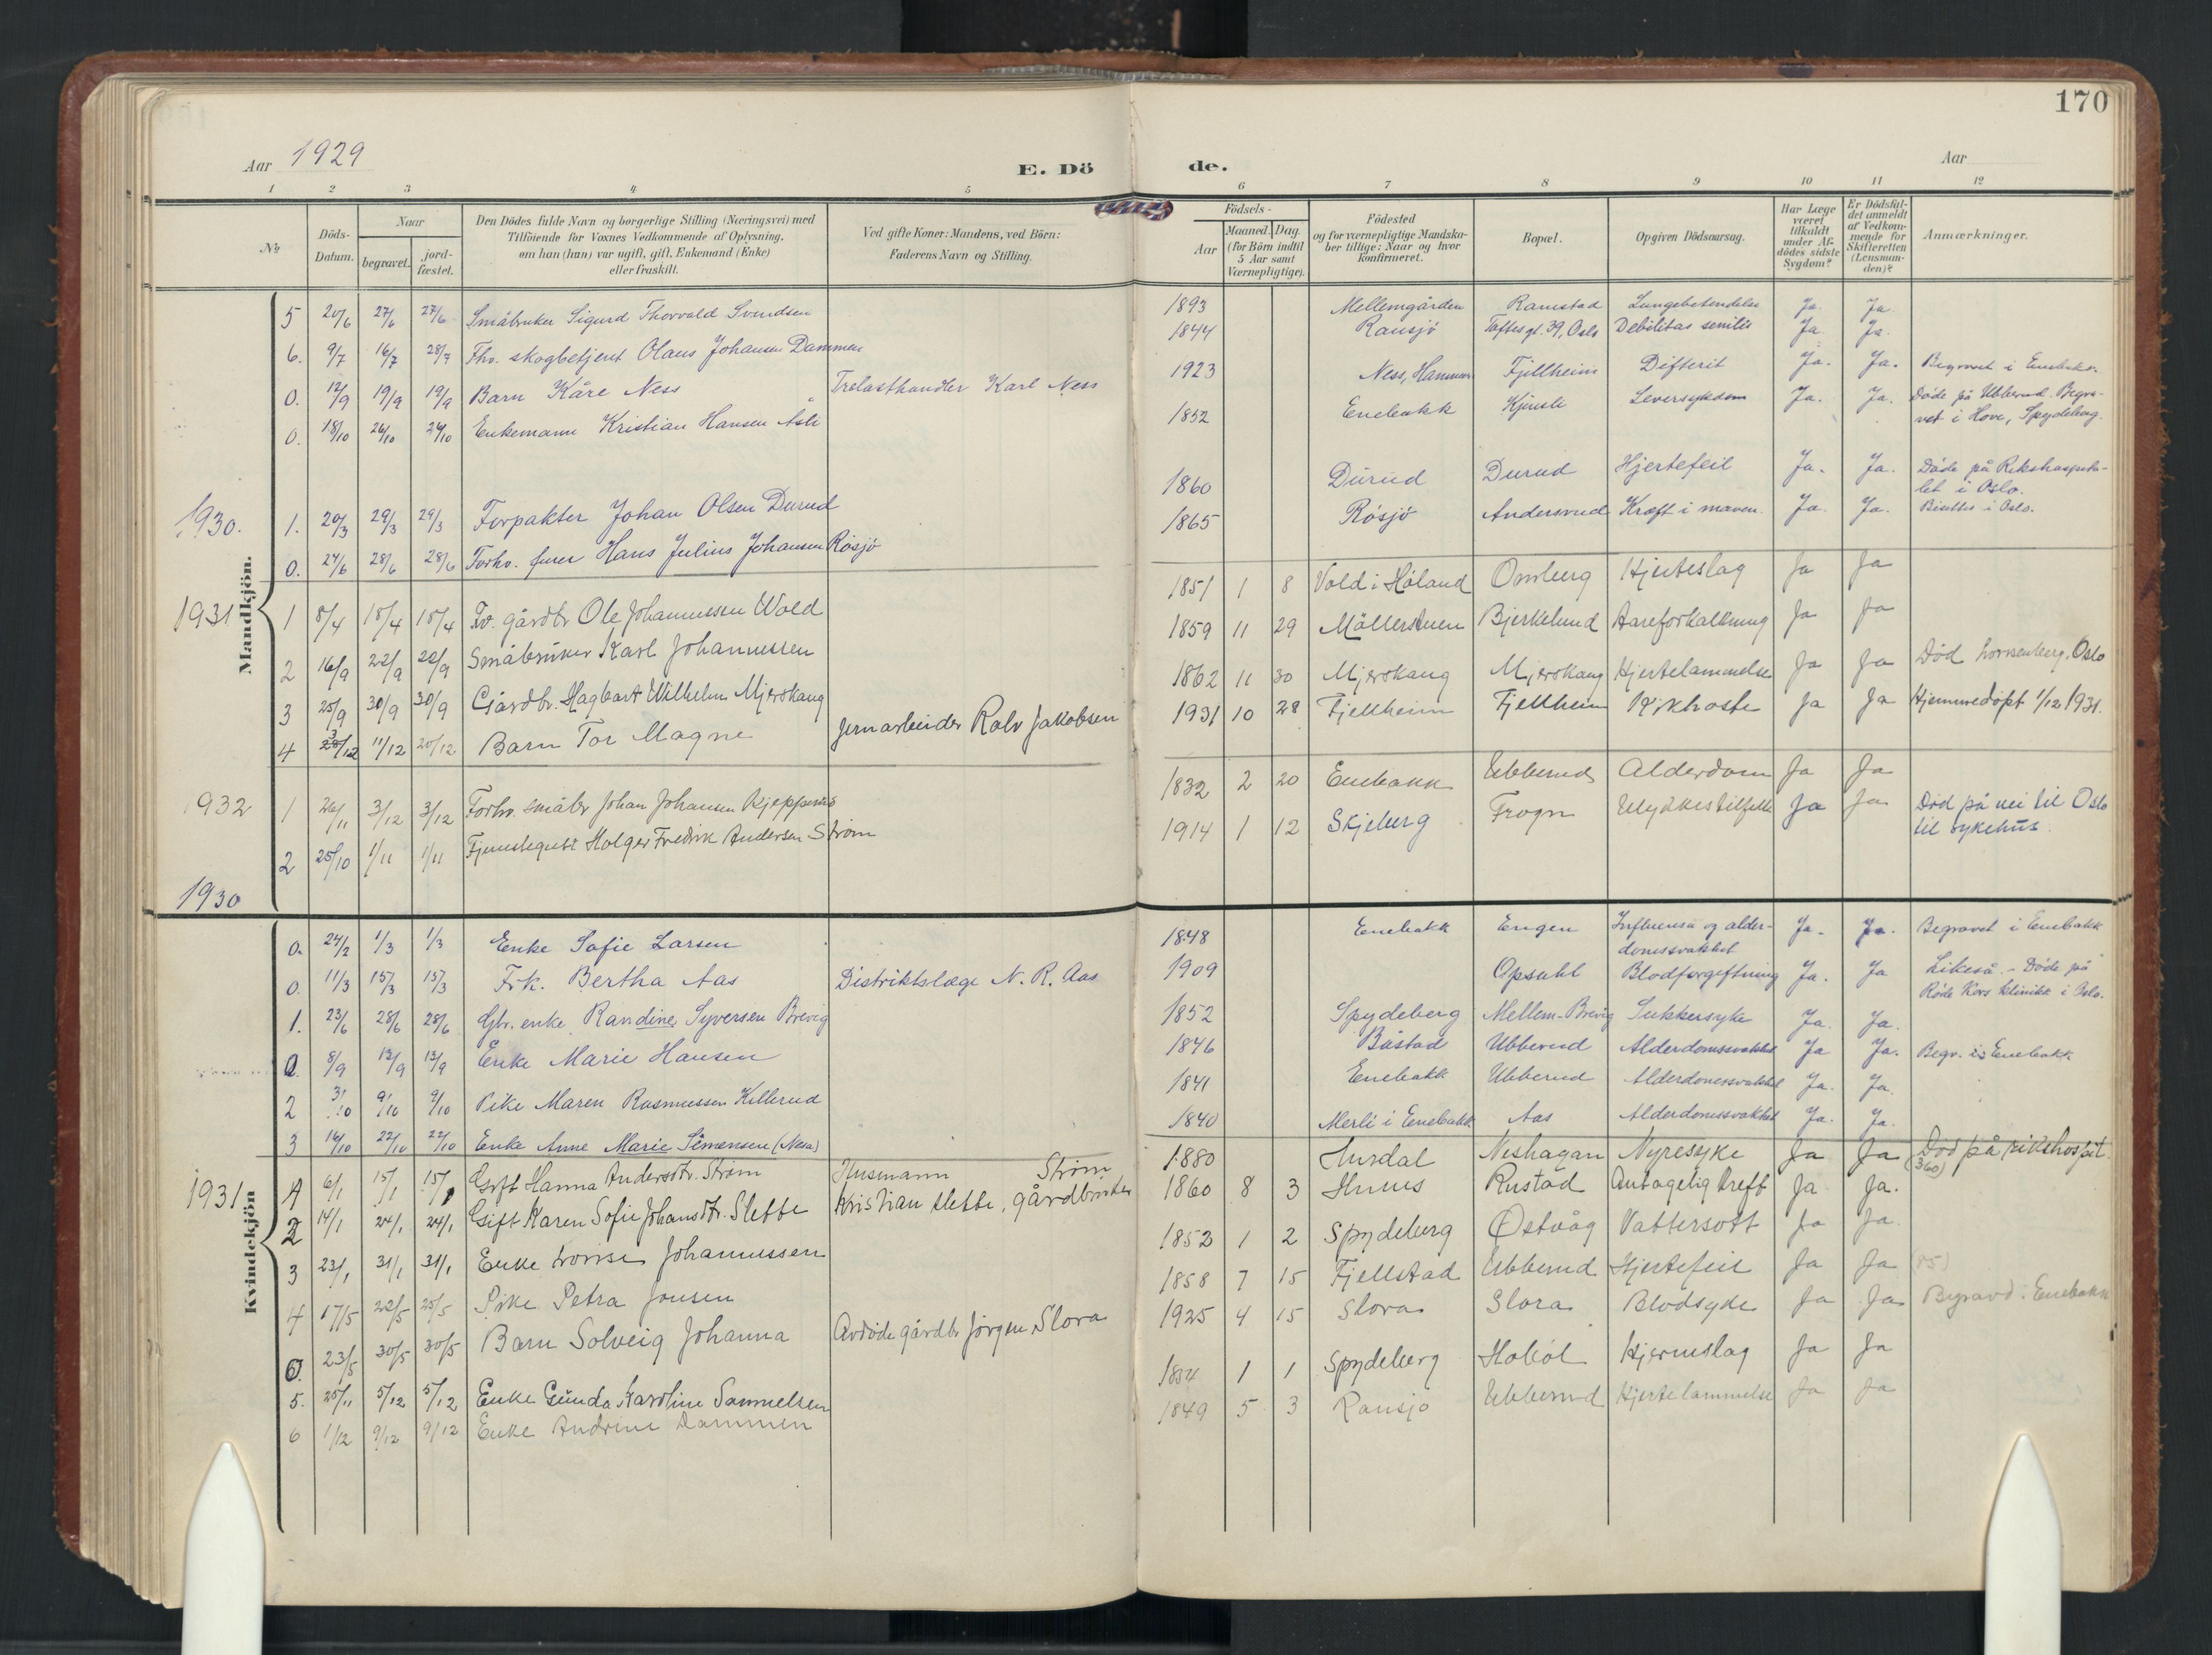 170
Aar 1929
E. Dö de.
Aar
1 2 3 4 5 6 7 8 9 10 11 12
No
Döds-Datum.
Naar
begravet.
jord-fæstet.
Den Dödes fulde Navn og borgerlige Stilling (Næringsvei) med
Tilföiende for Voxnes Vedkommende af Oplysning,
om han (hun) var ugift, gift, Enkemand (Enke)
eller fraskilt.
Ved gifte Koner: Mandens, ved Börn:
Faderens Navn og Stilling.
Födsels-
Aar
Maaned. Dag.
(for Börn indtil
5 Aar samt
Værnepligtige).
Födested
og for værnepligtige Mandska-
ber tillige: Naar og hvor
konfirmeret.
Bopæl.
Opgiven Dödsaarsag.
Har Læge
været
tilkaldt
under Af-
dödes sidste
Sygdom?
Er Dödsfal-
det anmeldt
af Vedkom-
mende for
Skifteretten
(Lensman-
den)?
Anmærkninger.
Mandkjön.
5 20/6 27/6 27/6 Småbruker Sigurd Thorvald Svendsen 1893 Mellemgården Ramstad Lungebetendelse Ja. Ja
6. 9/7 16/7 28/7 Fhv. skogbetjent Olaus Johansen Dammen 1844 Ransjö Toftesgt. 39, Oslo Debilitas senilis Ja Ja.
0. 12/9 19/9 19/9 Barn Kåre Ness Trelasthandler Karl Ness 1923 Ness, Hammer Fjellheim Difterit Ja. Ja. Begravet i Enebakk.
0. 18/10 26/10 24/10 Enkemann Kristian Hansen Asli 1852 Enebakk Leversykdom Ja. Ja. Döde på Ubberud. Begra-
vet i Hove, Spydeberg.
1930.
1. 20/3 29/3 29/3 Forpakter Johan Olsen Durud 1860 Durud Durud Hjertefeil Ja. Ja. Döde på Rikshospita-
let i Oslo.
0. 24/6 28/6 28/6 Forhv. furer Hans Julius Johansen Rösjö 1865 Rösjö Andersrud Kræft i maven. Ja. Ja. Bisettes i Oslo.
1931
1 8/4 18/4 18/4 Fv. gårdbr Ole Johannessen Wold 1851 1 8 Vold i Höland Omberg Hjerteslag Ja Ja
2 16/9 22/9 22/9 Småbruker Karl Johannessen 1859 11 29 Möllerstuen Bjerkelund Aareforkalkning Ja Ja
3 25/9 30/9 30/9 Gårdbr. Hagbart Wilhelm Mjerskaug 1862 11 30 Mjerskaug Mjerskaug Hjertelammelse Ja Ja Död Lovisenberg, Oslo
4 3/12 11/12 20/12 Barn Tor Magne Jernarbeider Rolv Jakobsen 1931 10 28 Fjellheim Fjellheim Kikhoste Ja Ja Hjemmedöpt 1/12 1931.
1932
1 26/11 3/12 3/12 Forhv. småbr Johan Johansen Kjepperud 1832 2 20 Enebakk Ubberud Alderdom Ja Ja
2 25/10 1/11 1/11 Fjenestegutt Holger Fredrik Andersen Ström 1914 1 12 Skjeberg Frogn Ulykkestilfelle Ja Ja Död på vei til Oslo
til sykehus.
1930
Kvindekjön
0. 24/2 1/3 1/3 Enke Sofie Larsen 1848 Enebakk Engen Influensa og alder-
domssvakhet Ja. Ja. Begravet i Enebakk
0. 11/3 15/3 15/3 Frk. Bertha Aas Distriktslæge N. R. Aas 1909 Opsahl Blodforgiftning Ja. Ja Likeså. - Döde på
Röde Kors klinikk i Oslo.
1. 23/6 28/6 28/6 Gbr. enke Randine Syversen Brevig 1852 Spydeberg Mellem-Brevig Sukkersyke Ja. Ja.
0. 8/9 13/9 13/9 Enke Marie Hansen 1846 Båstad Ubberud Alderdomssvakhet Ja Ja. Begr. i Enebakk
2 3/10 9/10 9/10 Pike Maren Rasmussen Killerud 1841 Enebakk Ubberud Alderdomssvakhet Ja. Ja.
3 16/10 22/10 22/10 Enke Anne Marie Simensen (Nesa) 1840 Merli i Enebakk Aas Alderdomssvakhet Ja. Ja.
1931
1 6/1 15/1 15/1 Gift Hanna Andersdtr. Ström Husmann Ström 1880 Hurdal Neshagan Nyresyke Ja Ja Död på rikshospit.
2 14/1 24/1 24/1 Gift Karen Sofie Johansdtr. Slette Kristian Slette, gårdbruker 1860 8 3 Rustad Antagelig kreft Ja Ja.
3 23/1 31/1 31/1 Enke Lovise Johannessen 1853 1 2 Spydeberg Östvåg Vattersott Ja Ja.
4 17/5 22/5 25/5 Pike Petra Jonsen 1858 7 15 Fjellstad Ubberud Hjertefeil Ja Ja
0. 23/5 30/5 30/5 Barn Solveig Johanna Avdöde gårdbr Jörgen Slora 1925 4 15 Slora Slora Blodsyke Ja Ja Begravd i Enebakk
5. 25/11 5/12 5/12 Enke Gunda Karoline Samuelsen 1854 1 1 Spydeberg Hoböl Hjerneslag Ja Ja
6 1/12 9/12 9/12 Enke Andrine Dammen 1849 5 3 Ransjö Ubberud Hjertelammelse Ja Ja